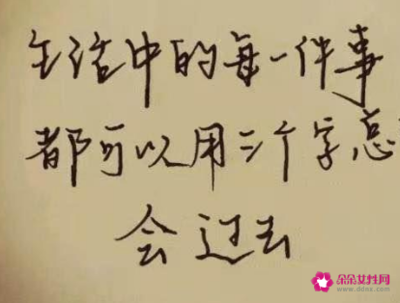 生活中的每一件事
都可以用三个字总
会过去
朵朵女性网
www.ddnx.com